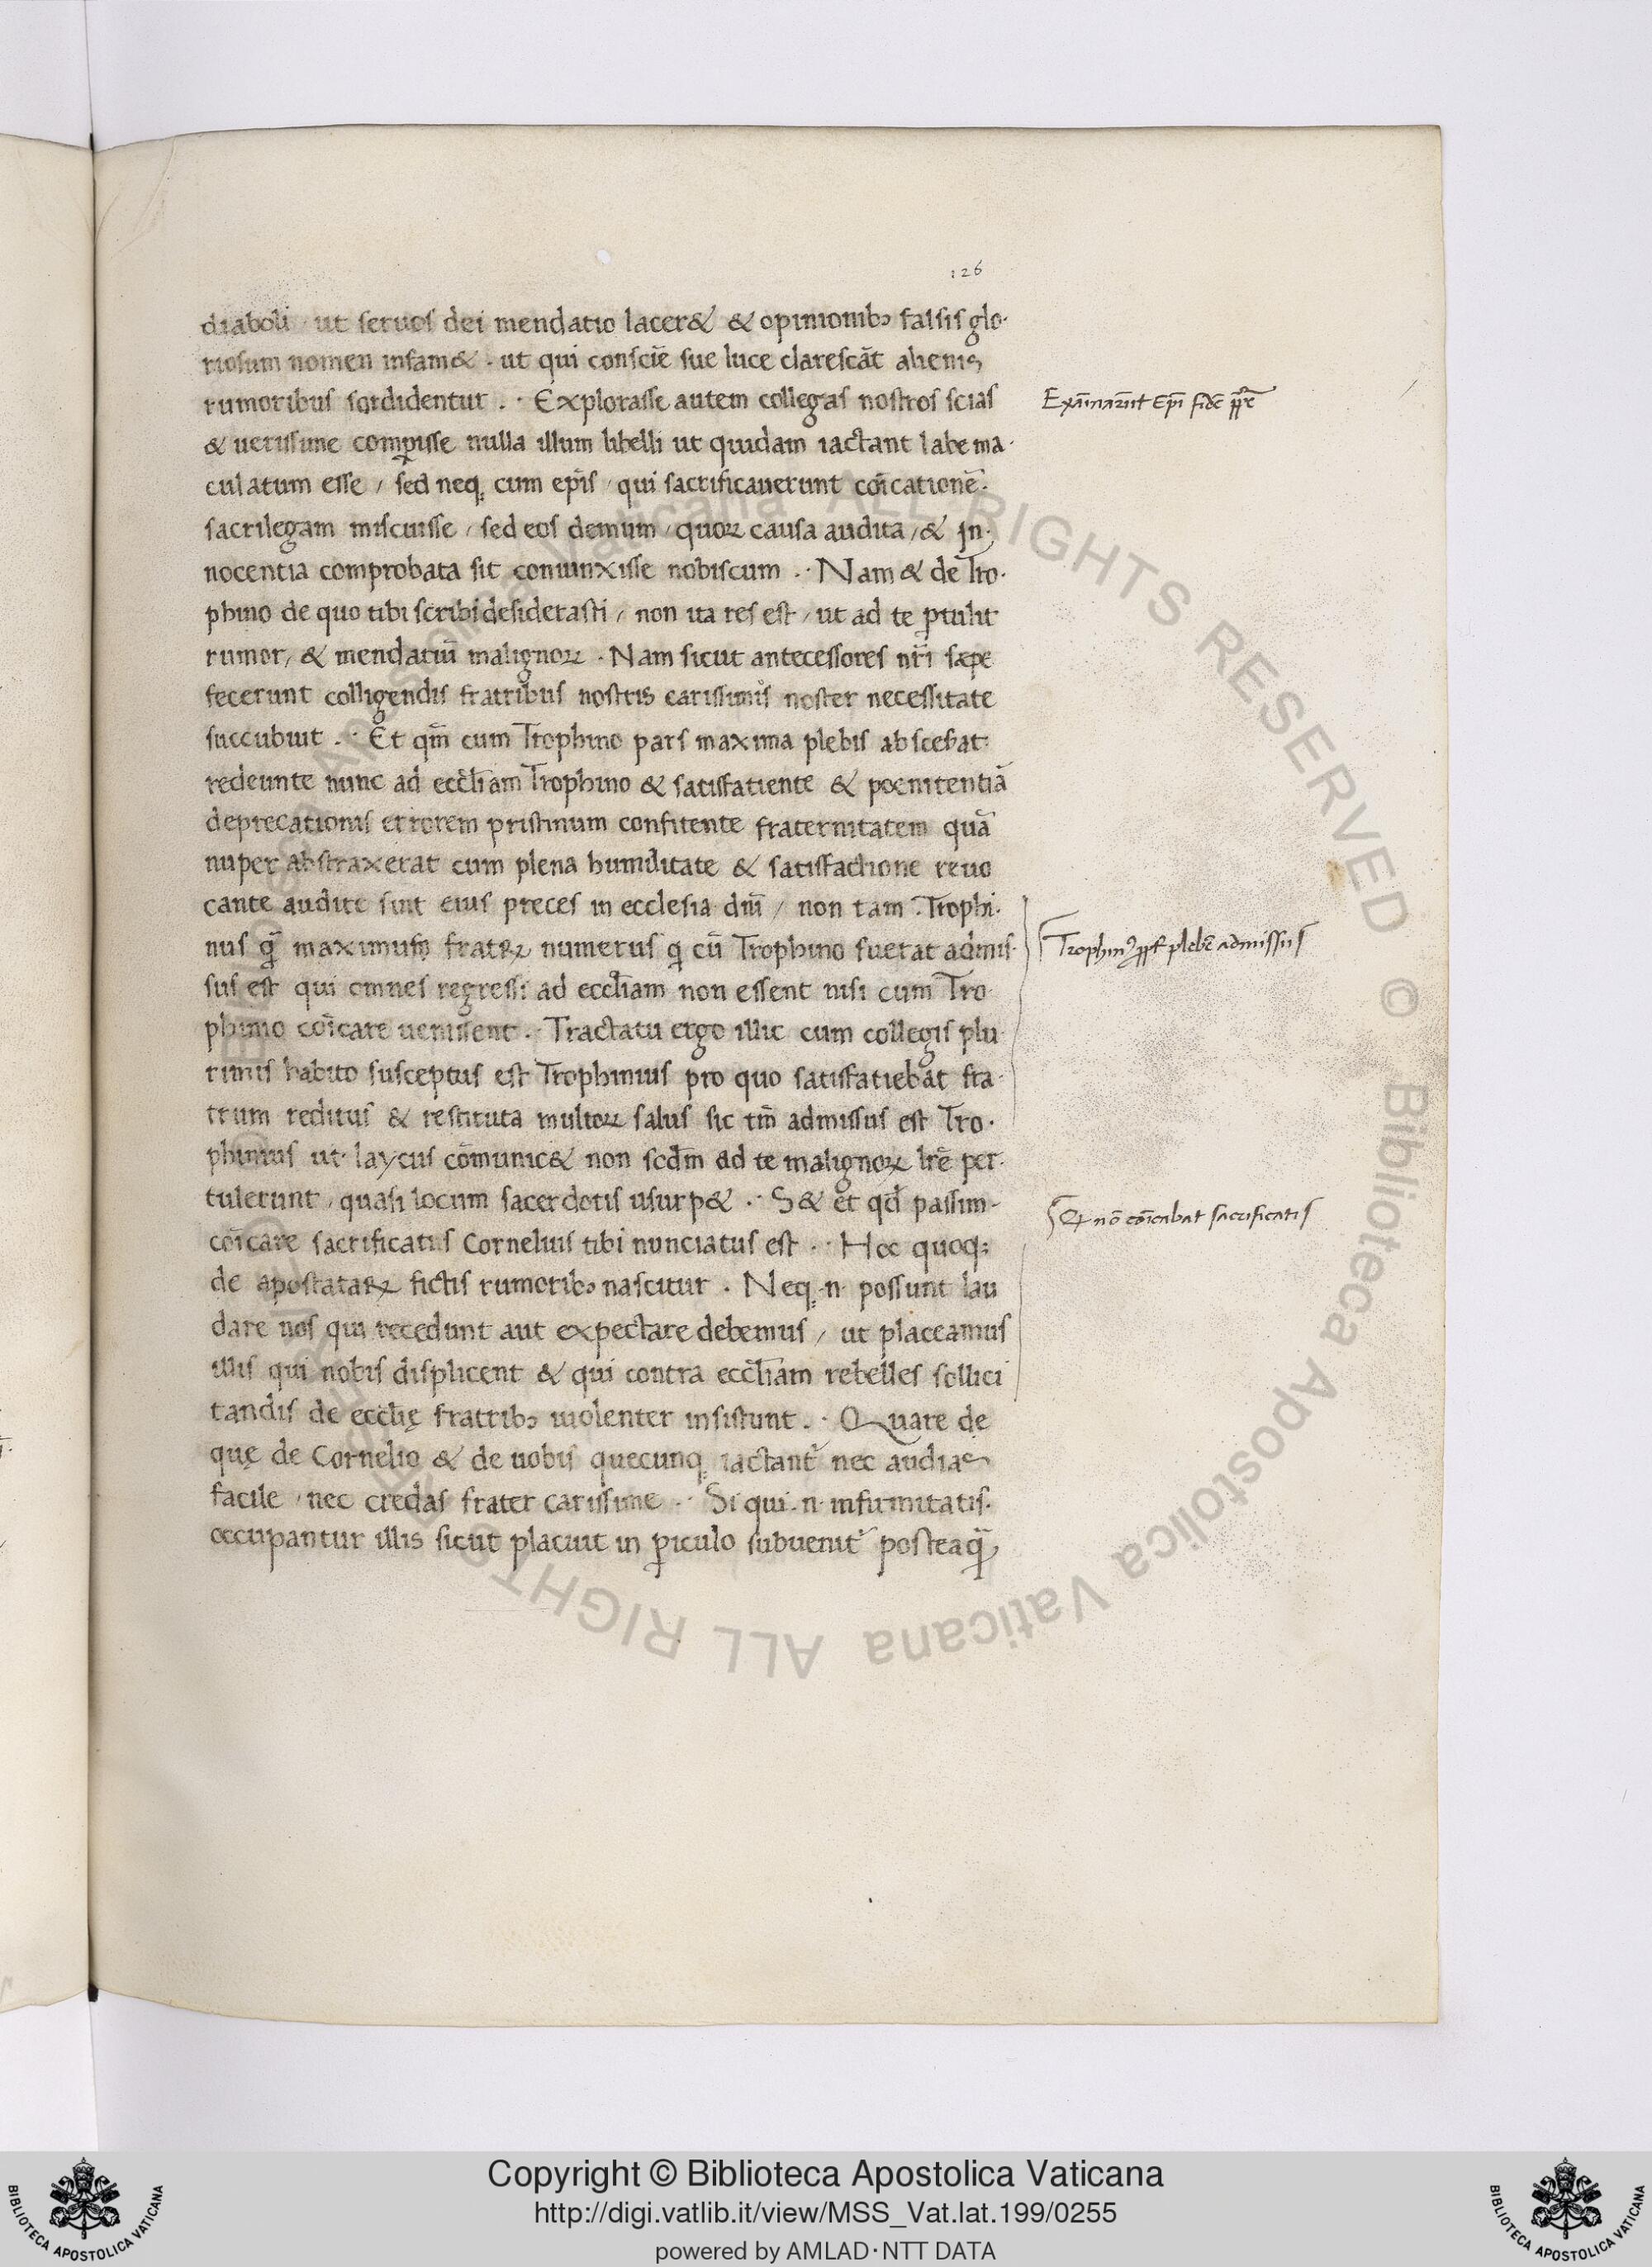 126
diaboli · ut seruos dei mendatio lacer& & opinionibꝫ falsis glo·
riosum nomen infam& · ut qui consciē sue luce clarescāt alienis
rumoribus sordidentur . · Explorasse autem collegas nostros scias
Exāinarūt Ep̄i fidē
& uerissime comꝑisse nulla illum libelli ut quidam iactant labe ma·
culatum esse / sed neqꝫ cum ep̄is / qui sacrificauerunt coīcationē·
sacrilegam miscuisse / sed eos demum / quoꝝ causa audita / & in·
nocentia comprobata sit coniunxisse nobiscum . · Nam & de Tro·
phino de quo tibi scribi desiderasti / non ita res est / ut ad te ꝑtulit
rumor / & mendatiū malignoꝝ . Nam sicut antecessores nr̄i sæpe
fecerunt colligendis fratribus nostris carissimꝰ noster necessitate
succubuit . · Et qm̄ cum Trophino pars maxima plebis abscesat·
redeunte nunc ad eccl̄iam Trophino & satisfatiente & poenitentiā
deprecationis errorem pristinum confitente fraternitatem quā
nuper abstraxerat cum plena humilitate & satisfactione reuo
cante audite sunt eius preces in ecclesia dn̄i / non tam Trophi·
nus q̄ maximum fratꝝ numerus q cū Trophino fuerat admis·
Trophinꝰ plebē admissus
sus est qui omnes regressi ad eccl̄iam non essent nisi cum Tro
phimo coīcare uenissent . · Tractatu ergo illic cum collegis plu
rimis habito susceptus est Trophinius pro quo satisfatiebāt fra·
trum reditus & restituta multoꝝ salus sic tm̄ admissus est Tro·
phinius ut laycus cōmunic& non scdm̄ ad te malignoꝝ lr̄e per·
tulerunt / quasi locum sacerdotis usurp& . · S& et qd̄ passim·
Et nō coīcabat sacrificatis
coīcare sacrificatis Cornelius tibi nunciatus est . · Hoc quoqꝫ
de apostataꝝ fictis rumoribꝫ nascitur . Neqꝫ·n· possunt lau
dare nos qui recedunt aut expectare debemus / ut placeamus
illis qui nobis displicent & qui contra eccl̄iam rebelles sollici
tandis de eccl̄ię fratribꝫ uiolenter insistunt . · Quare de
quę de Cornelio & de uobis quecunqꝫ iactant᷑ nec audias
facile / nec credas frater carissime . · Si qui·n· infirmitatis·
occupantur illis sicut placuit in ꝑiculo subuenit᷑ posteaq̄
Copyright © Biblioteca Apostolica Vaticana
http://digi.vatlib.it/view/MSS_Vat.lat.199/0255
powered by AMLAD·NTT DATA